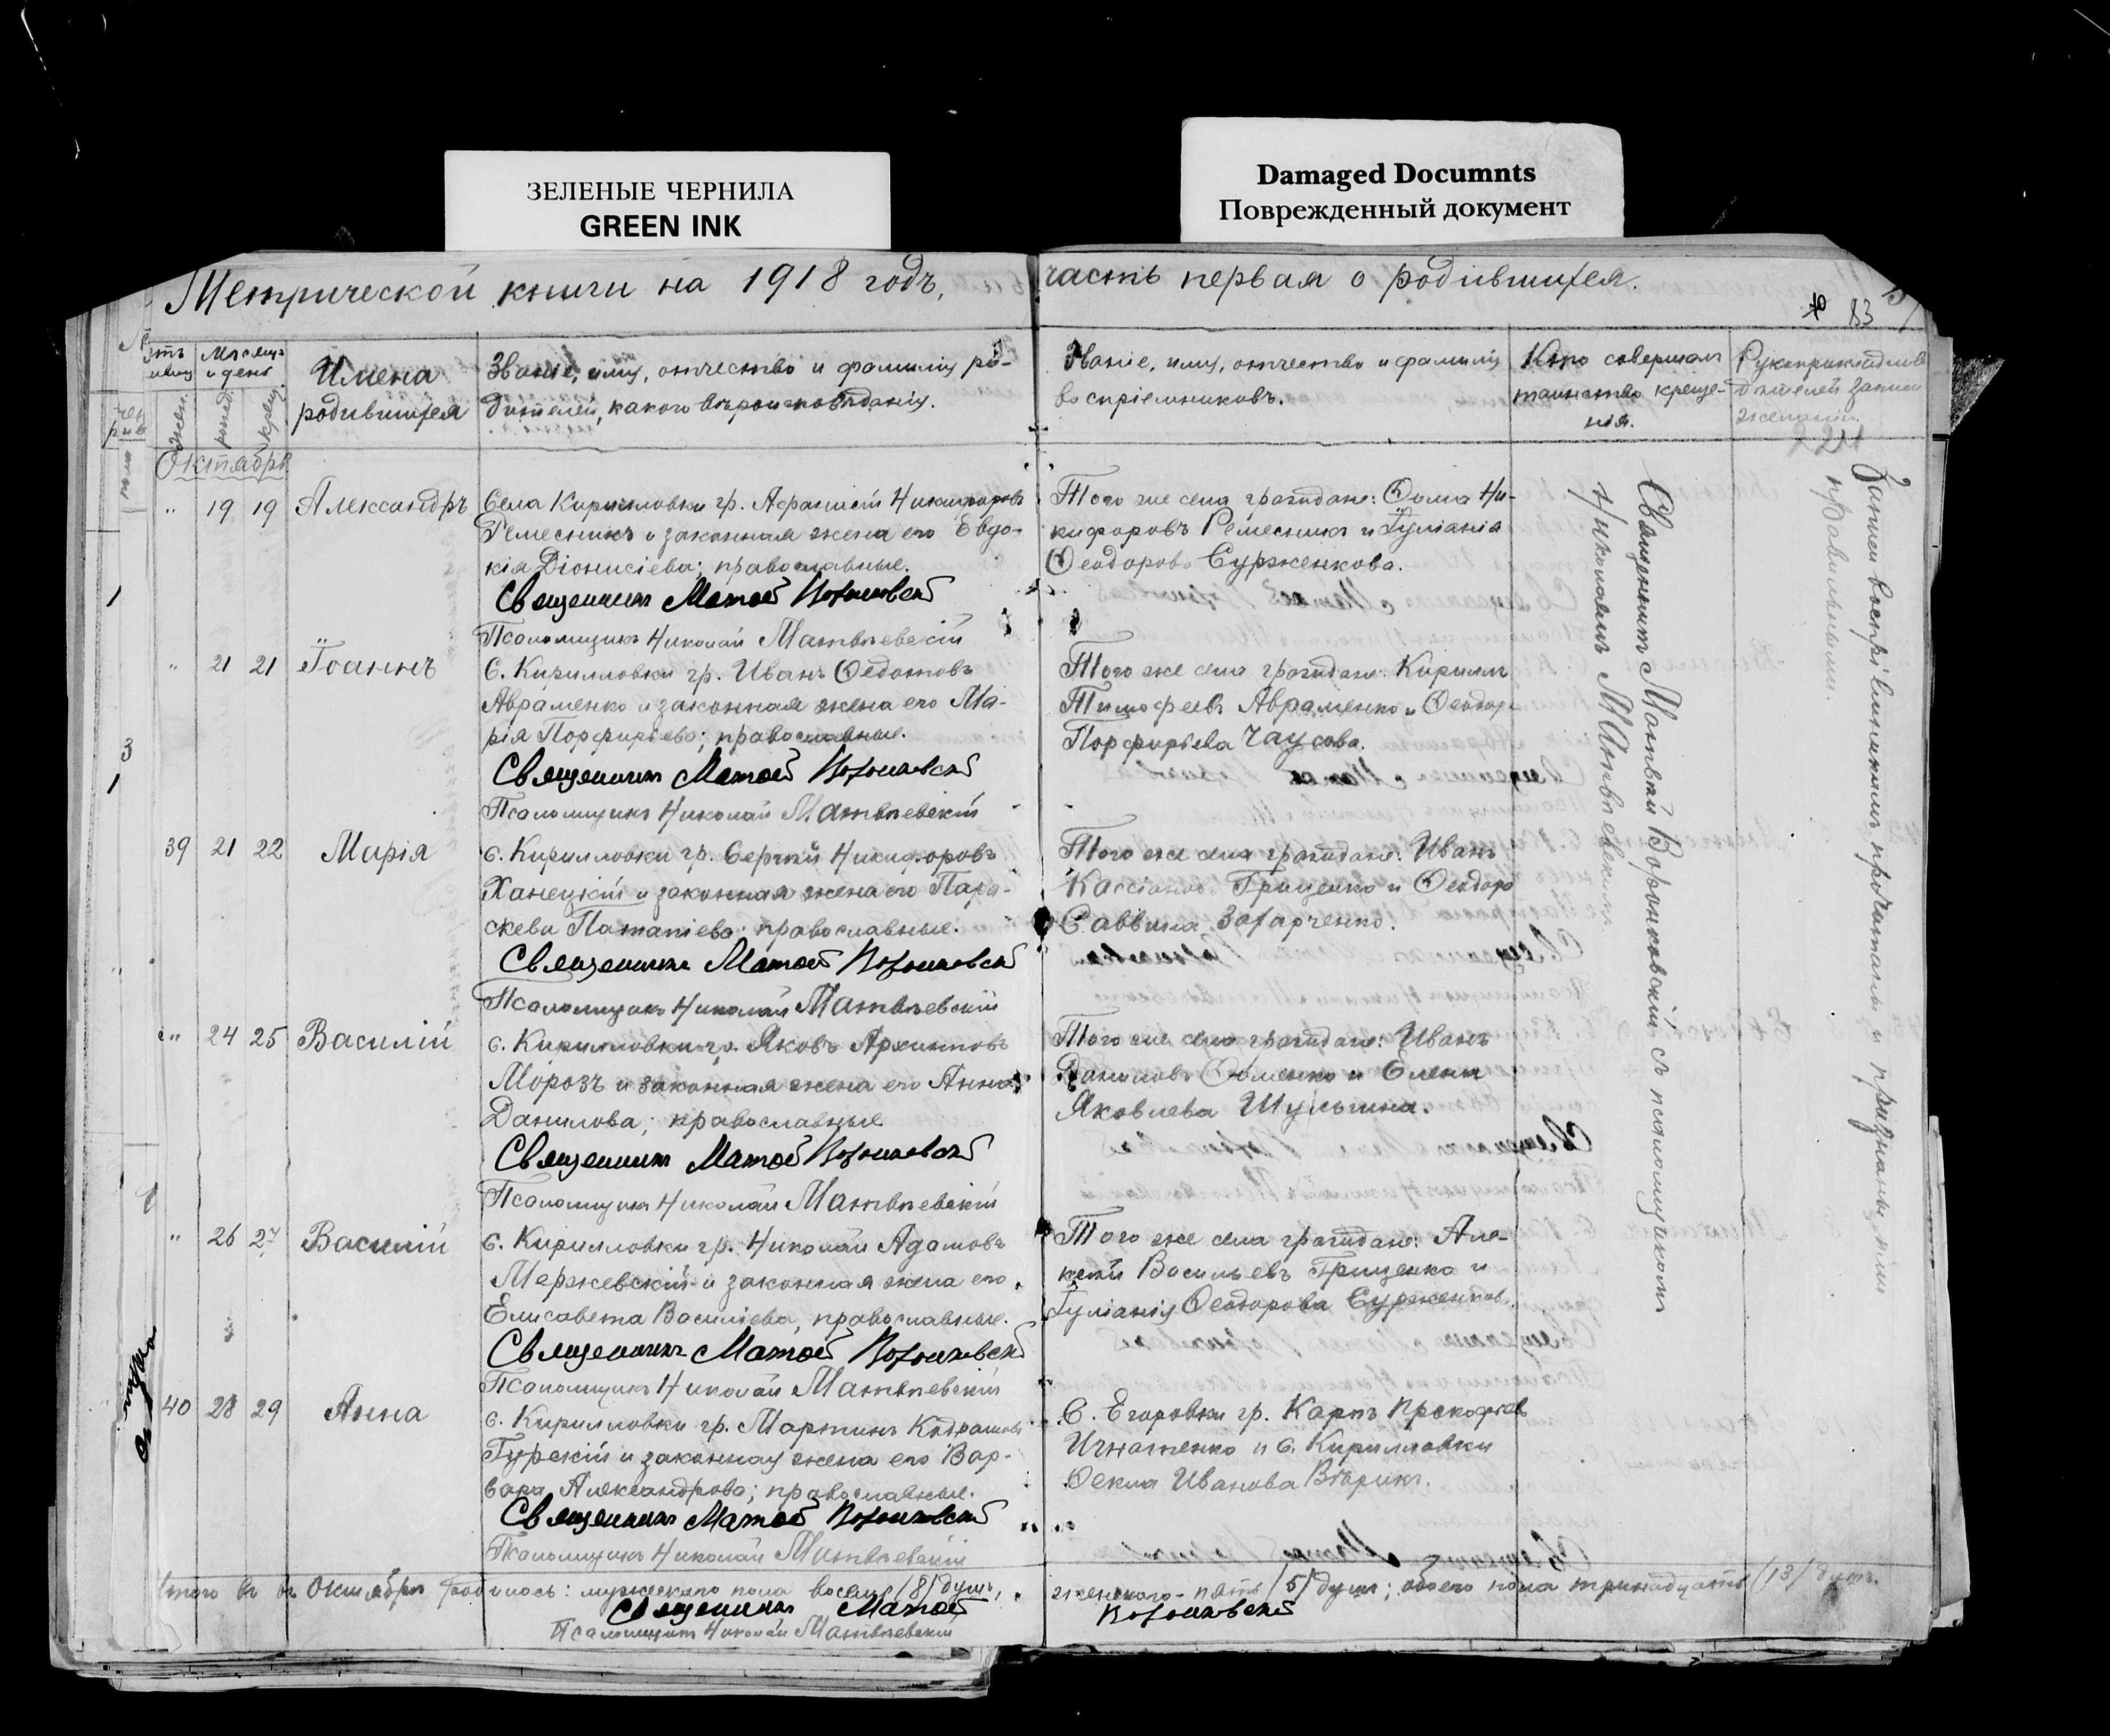 ЗЕЛЕНЫЕ ЧЕРНИЛА
GREEN INK
Damaged Documnts
Поврежденный документ
Метрической книги на 1918 годъ, часть первая о родившихся.
83
Мѣсяцъ и день
Имена родившихся
Званіе, имя, отчество и фамилія родителей, какого вѣроисповѣданія.
Званіе, имя, отчество и фамилія воспріемниковъ.
Кто совершалъ таинство крещенія.
Октябрь
" 19 19 Александръ
Села Кирилловки гр. Афанасій Никифоровъ
Ремесникъ и законная жена его Евдо-
кія Діонисіева; православные.
Священникъ Матвей Воронковский
Псаломщикъ Николай Матвѣевскій
Того же села граждане: Ѳома Ни-
кифоровъ Ремесникъ и Іуліанія
Ѳеодорова Сурженкова.
" 21 21 Іоаннъ
С. Кирилловки гр. Иванъ Ѳедотовъ
Авраменко и законная жена его Ма-
рія Порфирьева; православные.
Священникъ Матвей Воронковский
Псаломщикъ Николай Матвѣевскій
Того же села граждане: Кириллъ
Тимофеевъ Авраменко и Ѳеодора
Порфирьева Чаусова.
39 21 22 Марія
с. Кирилловки гр. Сергѣй Никифоровъ
Ханецкій и законная жена его Пара-
скева Потапіева; православные.
Священникъ Матвей Воронковский
Псаломщикъ Николай Матвѣевскій
Того же села граждане: Иванъ
Кассіановъ Гриценко и Ѳеодора
Саввина Захарченко.
" 24 25 Василій
с. Кирилловки гр. Яковъ Архиповъ
Морозъ и законная жена его Анна
Данилова; православные
Священникъ Матвей Воронковский
Псаломщикъ Николай Матвѣевскій
Того же села граждане: Иванъ
Даниловъ Ѳоменко и Елена
Яковлева Шульгина.
" 26 27 Василій
с. Кирилловки гр. Николай Адамовъ
Мержевскій и законная жена его
Елисавета Василіева, православные.
Священникъ Матвей Воронковский
Псаломщикъ Николай Матвѣевскій
Того же села граждане: Але-
ксѣй Васильевъ Гриценко и
Іуліанія Ѳеодорова Сурженков
40 28 29 Анна
с. Кирилловки гр. Мартинъ Кодратовъ
Гурскій и законная жена его Вар-
вара Александрова; православные.
Священникъ Матвей Воронковский
Псаломщикъ Николай Матвѣевскій
С. Егоровки гр. Карпъ Прокофіев
Игнатенко и с. Кирилловки
Ѳекла Иванова Вѣрикъ.
Священникъ Матвѣй Воронковскій съ псаломщикомъ
Николаемъ Матвѣевскимъ.
Записи воспріемниками прочитаны и признаны ими
правильными.
Итого въ Октябрѣ родилось: мужескаго пола восемь /8/ душъ, женскаго - пять /5/ душ; обоего пола тринадцать /13/ душъ.
Священникъ Матвей Воронковский
Псаломщикъ Николай Матвѣевскій